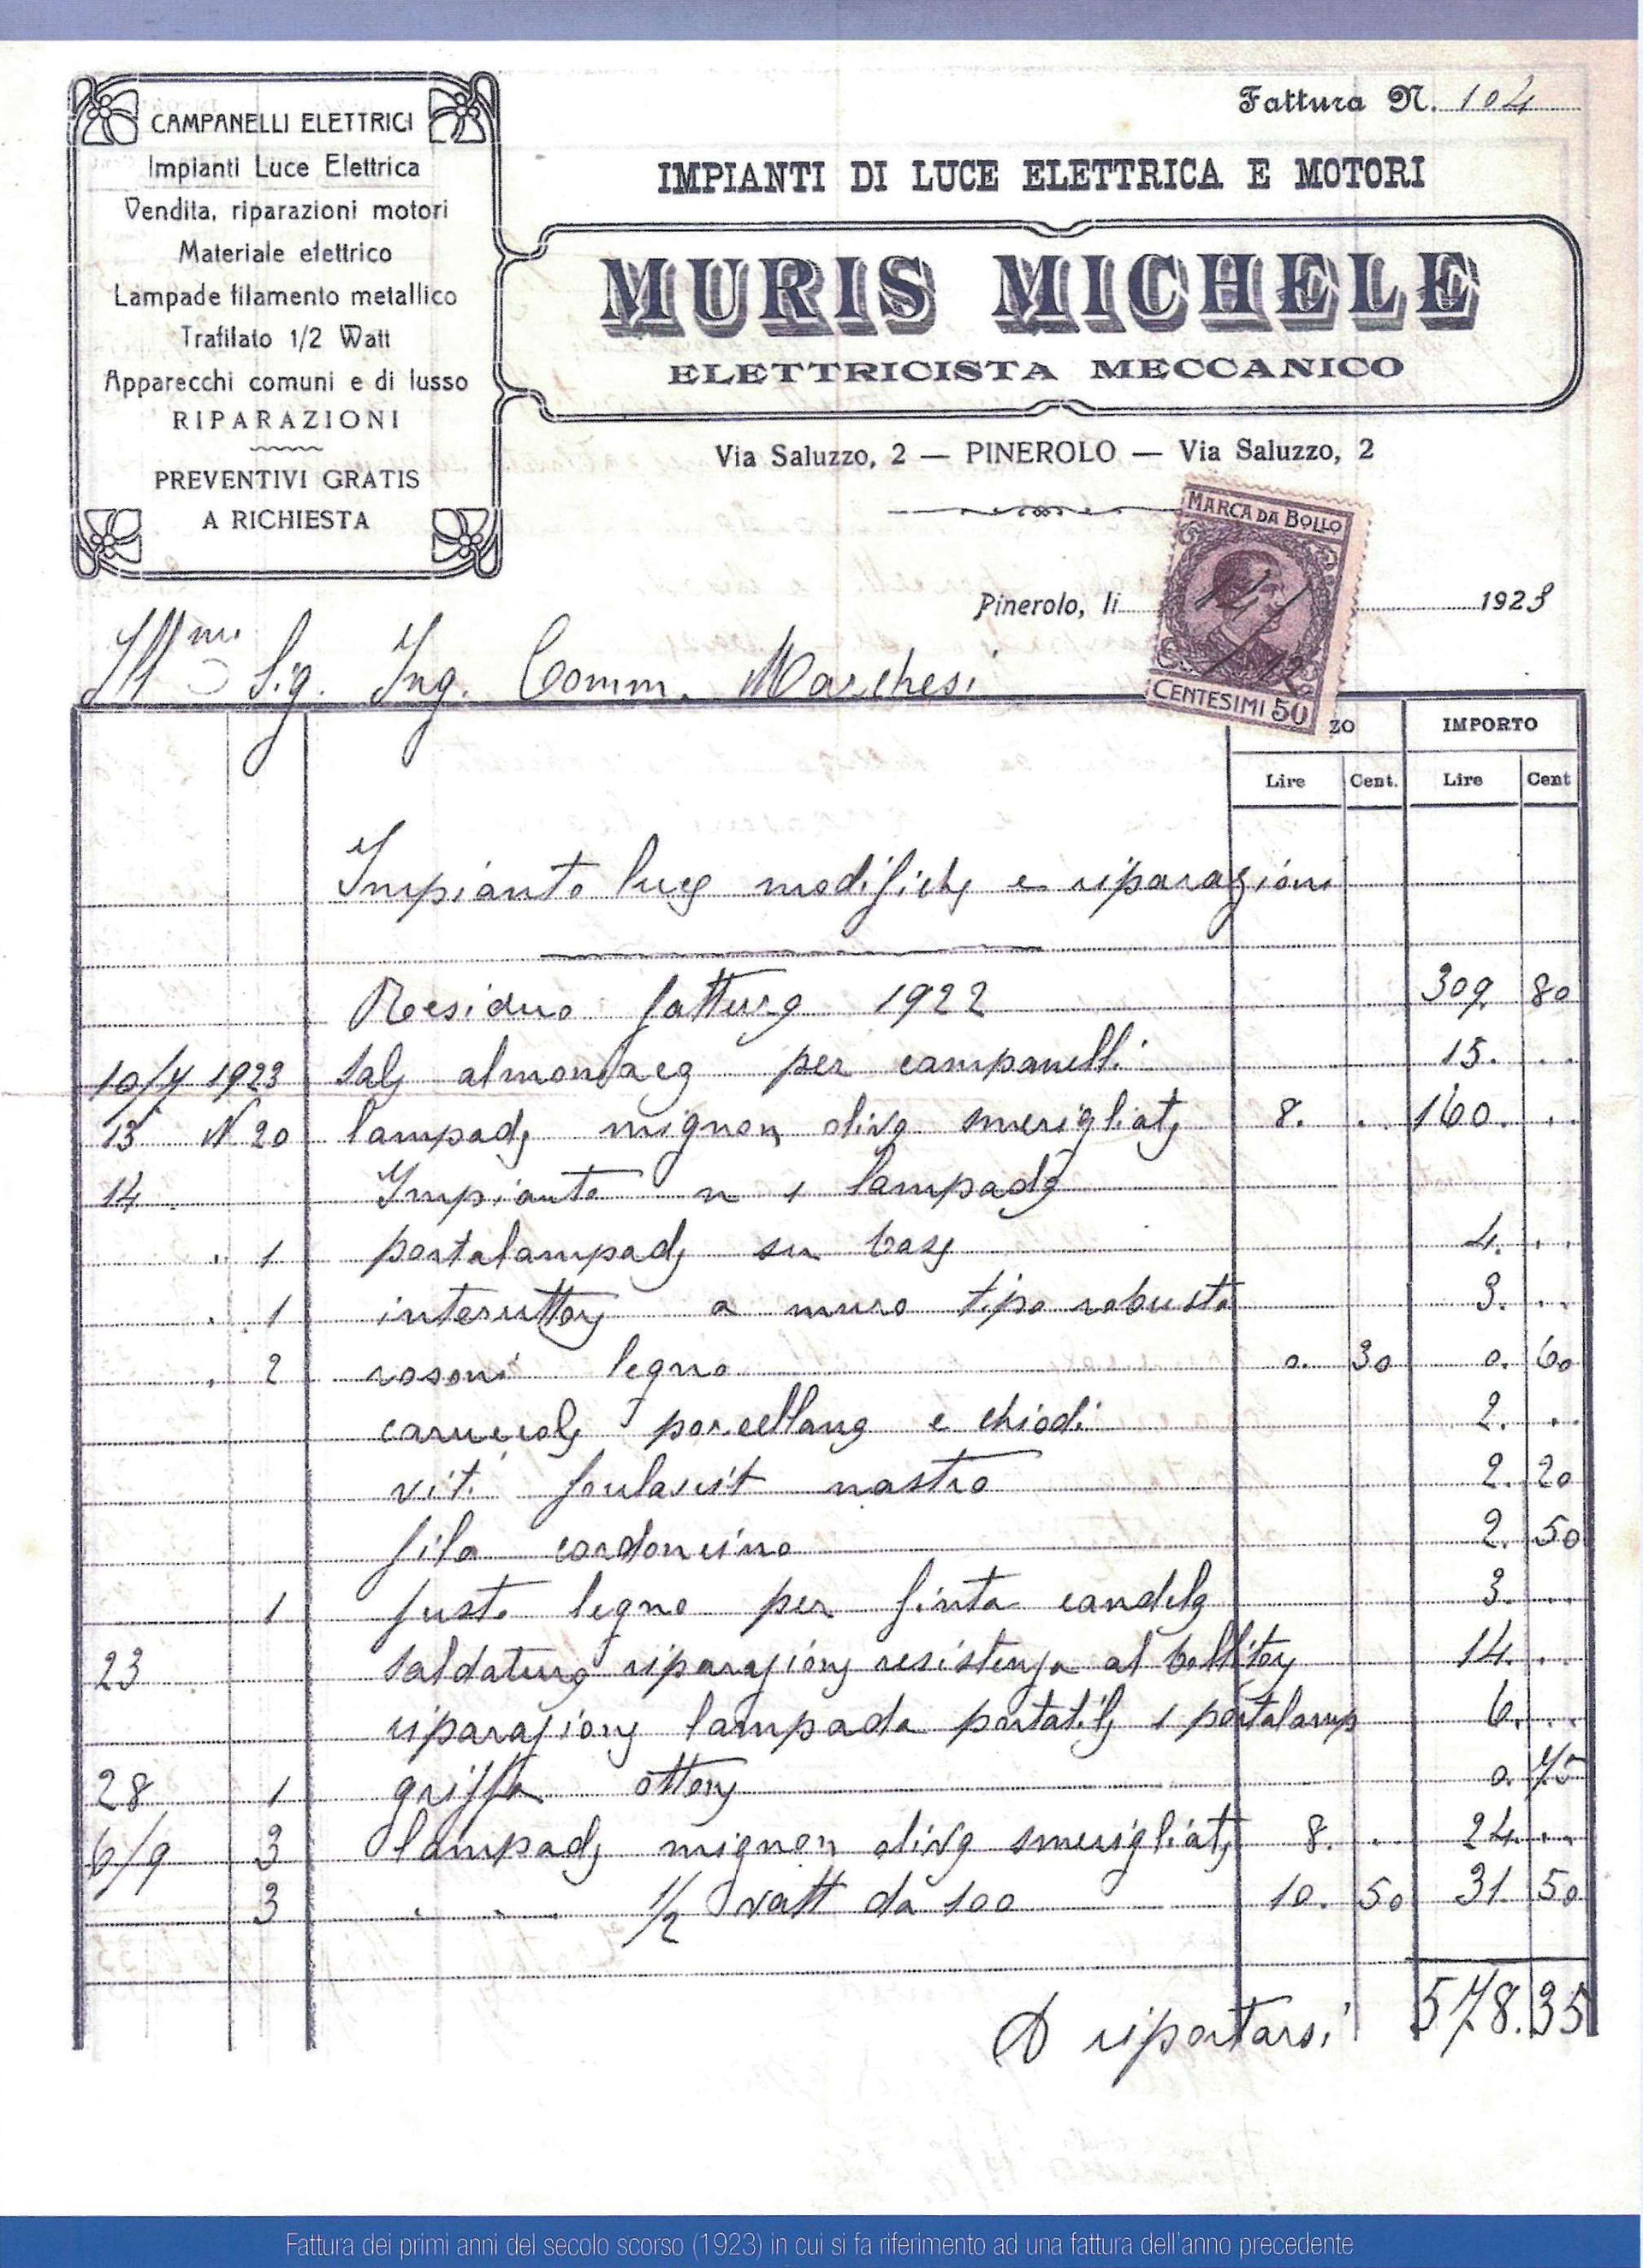 Fattura N. 104
CAMPANELLI ELETTRICI
Impianti Luce Elettrica
Vendita, riparazioni motori
Materiale elettrico
Lampade filamento metallico
Trafilato 1/2 Watt
Apparecchi comuni e di lusso
RIPARAZIONI
PREVENTIVI GRATIS
A RICHIESTA
IMPIANTI DI LUCE ELETTRICA E MOTORI
MURIS MICHELE
ELETTRICISTA MECCANICO
Via Saluzzo, 2 — PINEROLO — Via Saluzzo, 2
MARCA DA BOLLO
CENTESIMI 50
Pinerolo, li 1923
Ill mo Sig. Ing. Comm. Marchesi
ZO IMPORTO
Lire Cent. Lire Cent
Impianto luce modifiche e riparazioni
Residuo fattura 1922 309. 80
10/7 1923 Sale almoniaca per campanelli 15. ..
13 N 20 lampade mignon oliva smerigliate 8. . 160. ..
14 Impianto n 1 lampada
" 1 portalampade su base 4. ..
" 1 interuttore a muro tipo robusto 3. ..
" 2 rosoni legno 0. 30 0. 60
carrucole porcellana e chiodi 2. ..
viti nastro 2. 20
filo cordoncino 2. 50
1 fusto legno per finta candela 3. ..
23 Saldatura riparazione resistenza al bollitore 14. ..
riparazione lampada portatile 1 portalamp 6. ..
28 1 griffa ottone 0. 75
6/9 3 lampade mignon oliva smerigliate 8. . 24. ..
3 " " 1/2 vatt da 100 10. 50 31. 50
A riportarsi 578. 35
Fattura dei primi anni del secolo scorso (1923) in cui si fa riferimento ad una fattura dell'anno precedente